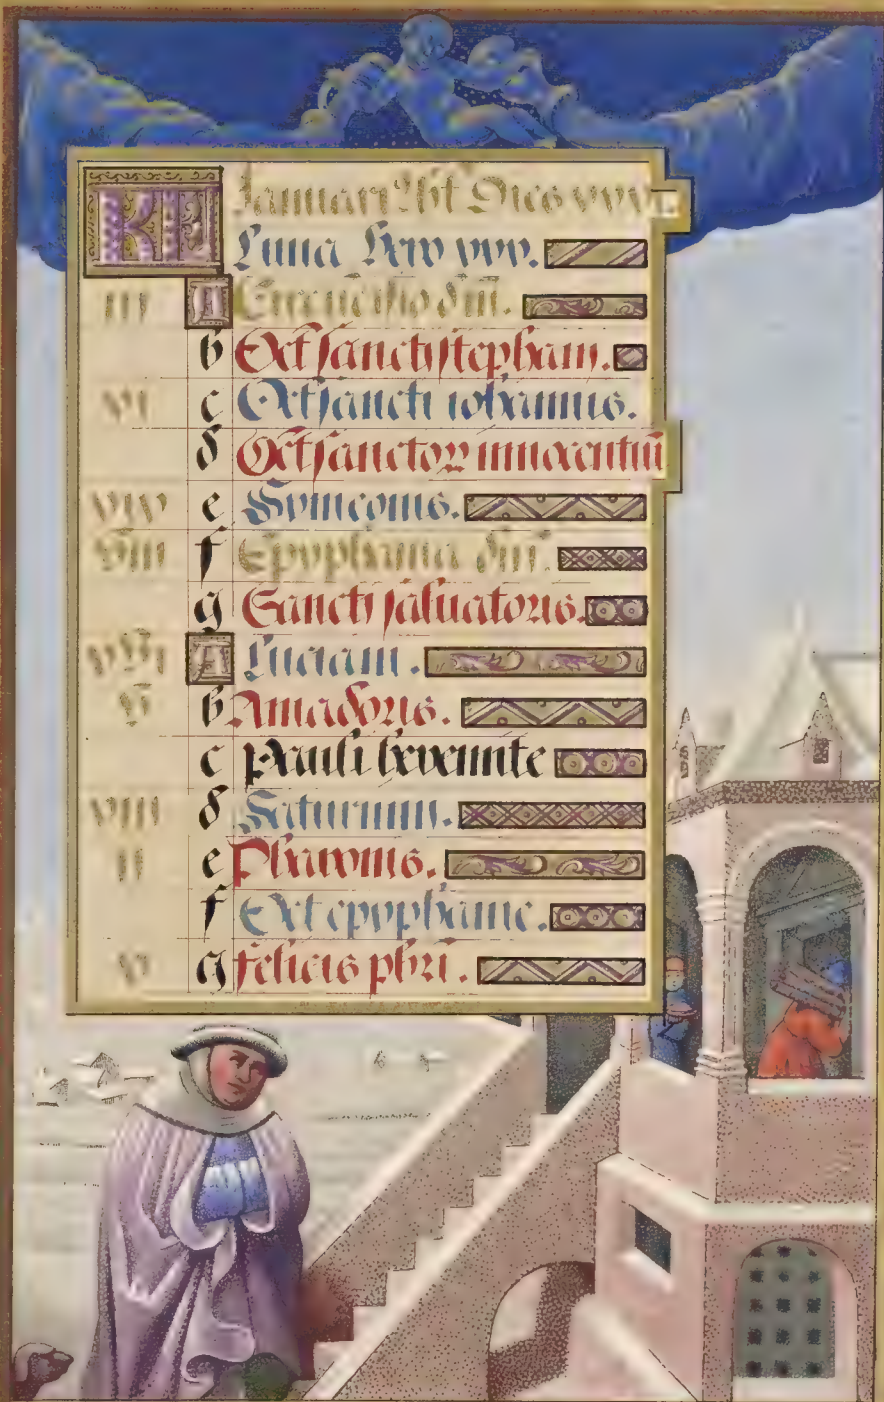 KL Januari⁹ h̄t Dies xxxi.
Luna v̄o xxx.
iii A Circūcisio dn̄i.
b Oct̄ sancti stephani.
xi c Oct̄ sancti iohannis.
d Oct̄ sanctoꝝ innocentiū
xix e Symeonis.
viii f Epyphania dn̄i.
g Sancti saluatoris.
xvi A Luciani.
v b Amadoris.
c Pauli heremite
xiii d Saturnini.
ii e
f Oct epyphanie.
x g felicis pbr̄i.